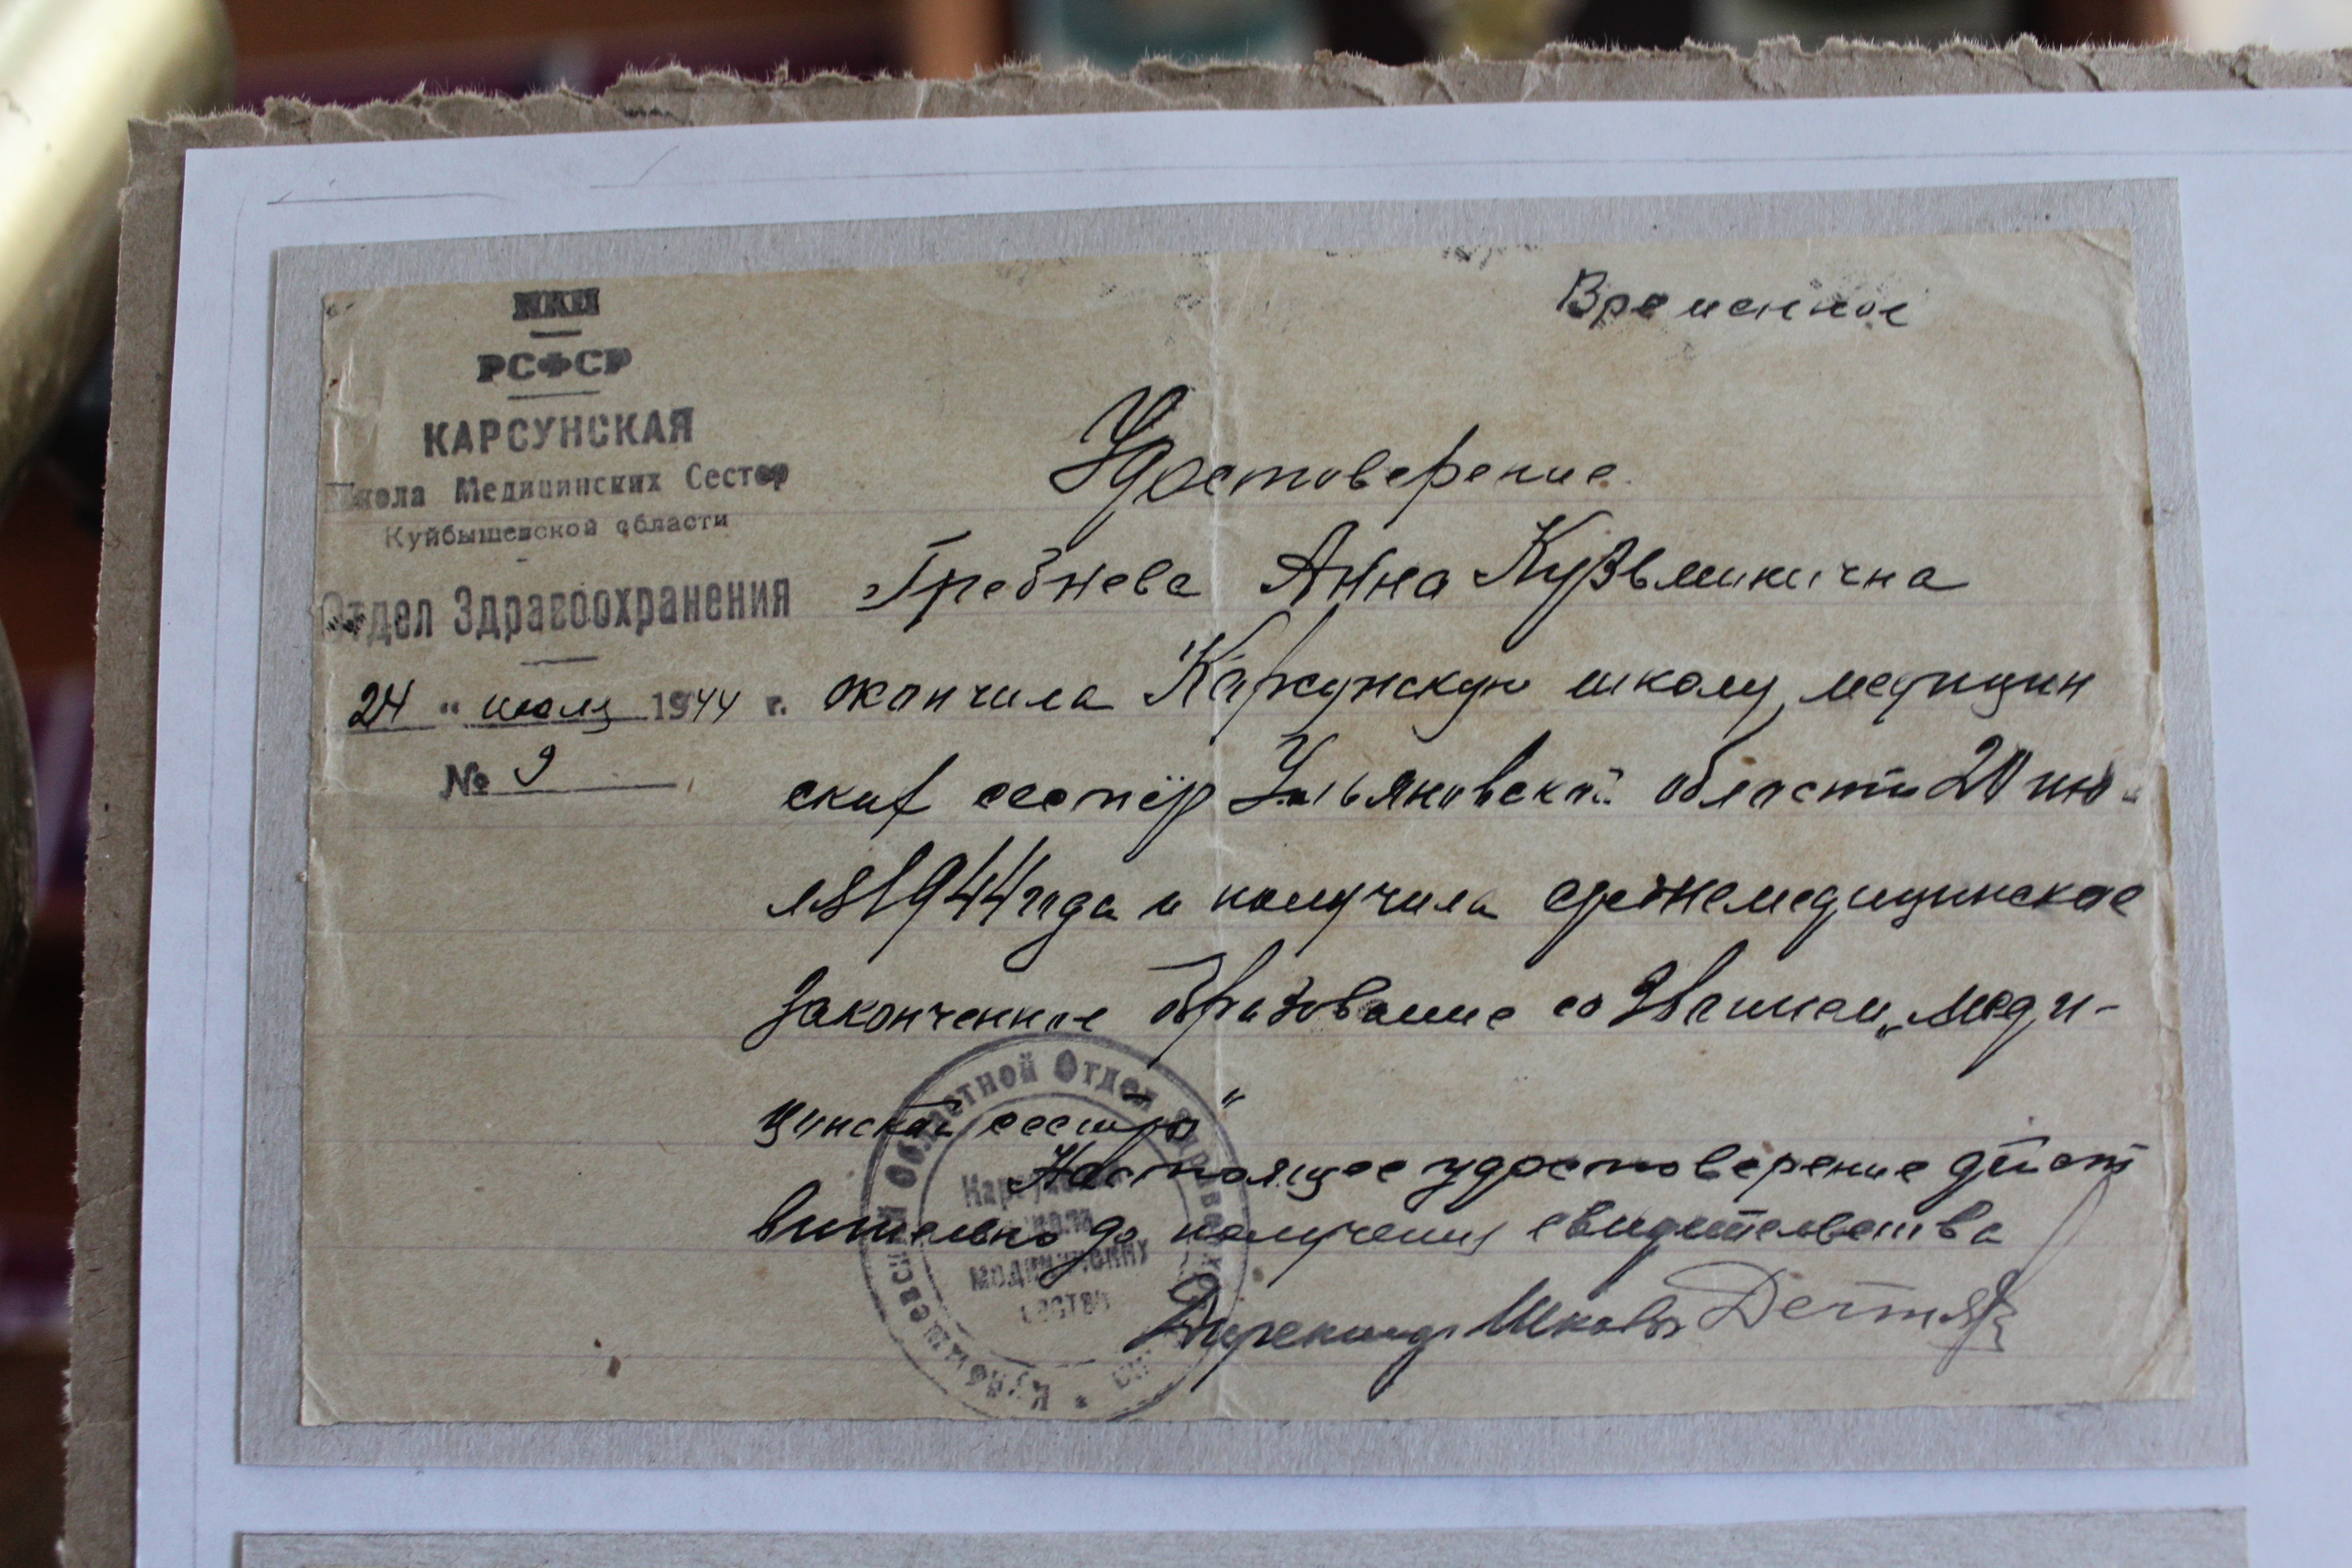 НКП
РСФСР
КАРСУНСКАЯ
Школа Медицинских Сестер
Куйбышевской области
Отдел Здравоохранения
24 " июля 1944 г.
№ 9
Временное
Удостоверение.
Гребнева Анна Кузьминична
окончила Карсунскую школу медицин
ских сестёр Ульяновской области 20 ию-
ля 1944 года и получила среднемедицинское
законченное образование со званием „меди-
цинской сестры"
Настоящее удостоверение дейст
вительно до получения свидетельства
Директор Школы
Куйбышевский Областной Отдел Здравоохранения
Карсунская
школа
медицинских
сестёр